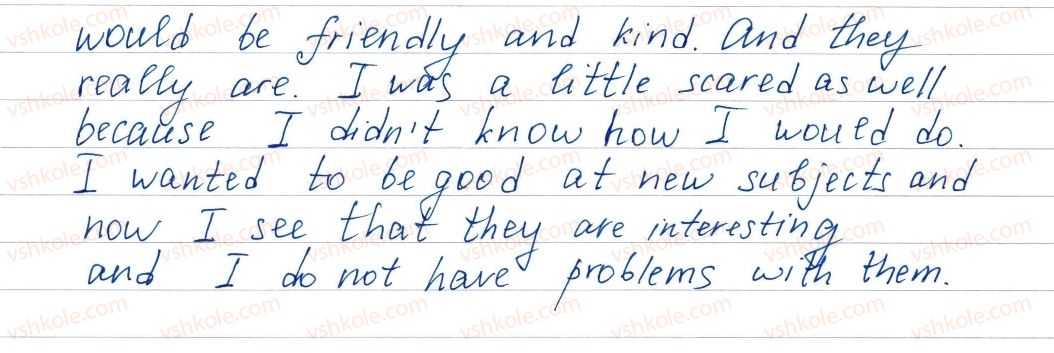 would be friendly and kind. And they
really are. I was a little scared as well
because I didn't know how I would do.
I wanted to be good at new subjects and
now I see that they are interesting
and I do not have problems with them.